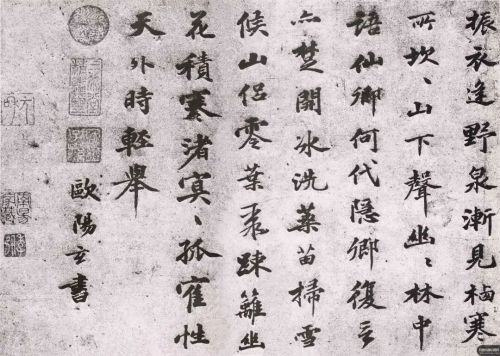 振衣逢野泉漸見栖寒
所坎、山下聲幽、林中
語仙卿何代隱鄉復言
亦楚開冰洗藥苗掃雪
候山侶零葉聚踈籬幽
花積寒渚冥、孤隺性
天外時輕舉
歐陽玄書